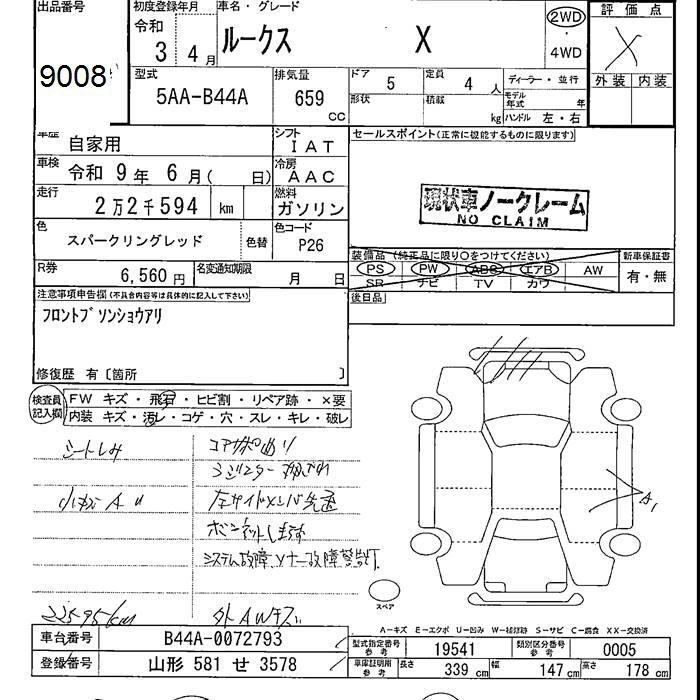 出品番号
9008
初度登録年月
令和
3 4 月
車名・グレード
ルークス X
2WD
・
4WD
評価点
X
外装 内装
型式
5AA-B44A
排気量
659
CC
ドア
5
定員
4 人
形状
積載
kg
ディーラー・並行
モデル年式 年
ハンドル 左・右
車歴
自家用
シフト
IAT
車検
令和 9 年 6 月( 日)
冷房
AAC
走行
2万2千594 km
燃料
ガソリン
色
スパークリングレッド
色替
色コード
P26
R券
6,560 円
名変通知期限
月 日
セールスポイント(正常に機能するものに限ります)
現状車ノークレーム
NO CLAIM
装備品 (純正品に限り○をつけてください)
PS PW ABS エアB AW
SR ナビ TV カワ
新車保証書
有・無
後日品
注意事項申告欄(不具合内容等は具体的に記入して下さい)
フロントブソンショウアリ
修復歴 有〔箇所 〕
検査員記入欄
FW キズ・飛石・ヒビ割・リペア跡・×要
内装 キズ・汚レ・コゲ・穴・スレ・キレ・破レ
シートしみ
コアサポ曲り
小キズ A U
左サイドメンバ先 
ボンネットしまらず
システム故障
外AWキズ
A1
スペア
A-キズ E-エクボ U-凹み W-補修跡 S-サビ C-腐食 XX-交換済
車台番号
B44A-0072793
登録番号
山形 581 せ 3578
型式指定番号
参考
19541
類別区分番号
参考
0005
車庫証明用
参考
長さ 339 cm
幅 147 cm
高さ 178 cm